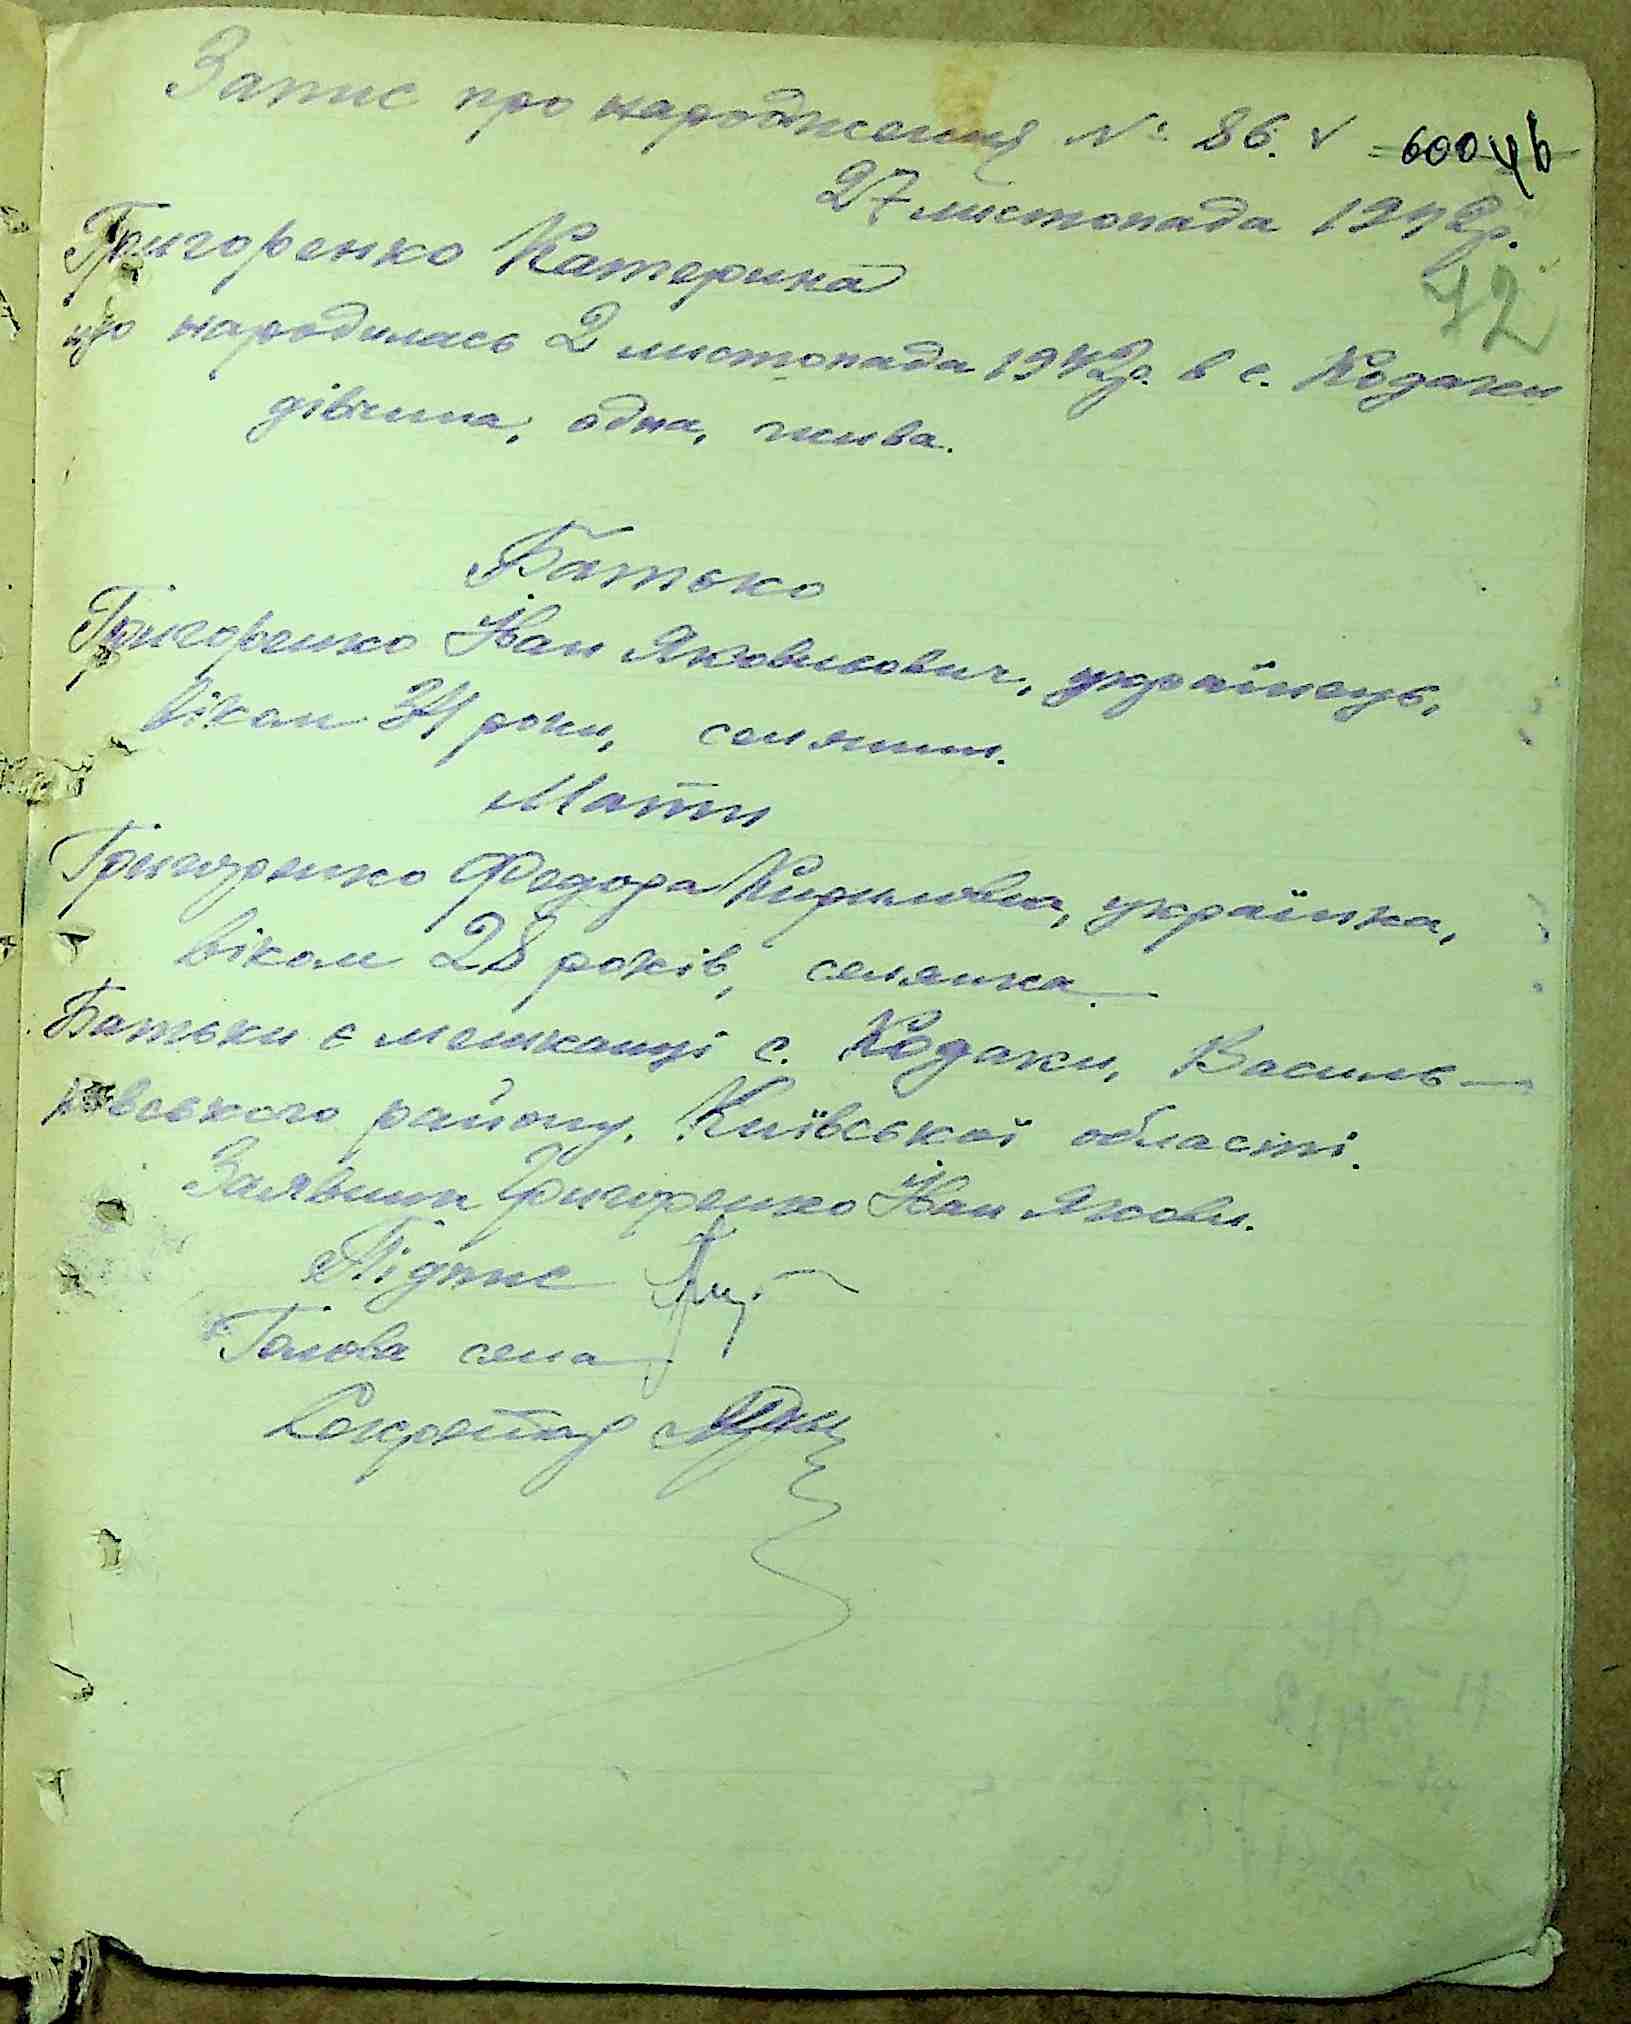 Запис про народження № 86. v 600 46
27 листопада 1942р.
42
Григоренко Катерина
що народилась 2 листопада 1942р. в с. Кодаки
дівчина, одна, жива.
Батько
Григоренко Іван Яковльович, українець,
віком 34 роки, селянин.
Мати
Григоренко Федора Кирилівна, українка,
віком 28 років, селянка.
Батьки є мешканці с. Кодаки, Василь-
ківського району, Київської області.
Заявник Григоренко Іван Яковл.
Підпис
Голова села
Секретар